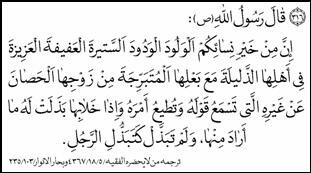 ٣١٦ قَالَ رَسُولُ اللّٰهِ (ص):
إِنَّ مِنْ خَيْرِ نِسَائِكُمْ الْوَلُودَ الْوَدُودَ السَّتِيرَةَ الْعَفِيفَةَ الْعَزِيزَةَ
فِى أَهْلِهَا الذَّلِيلَةَ مَعَ بَعْلِهَا الْمُتَبَرِّجَةَ مِنْ زَوْجِهَا الْحَصَانَ
عَنْ غَيْرِهِ الَّتِى تَسْمَعُ قَوْلَهُ وَتُطِيعُ أَمْرَهُ وَإِذَا خَلَابِهَا بَذَلَتْ لَهُ مَا
أَرَادَ مِنْهَا، وَلَمْ تَبَذَّلْ كَتَبَذُّلِ الرَّجُلِ.
ترجمه من لايحضره الفقيه/٤٣٦٧/١٨/٥ وبحار الانوار/٢٣٥/١٠٣